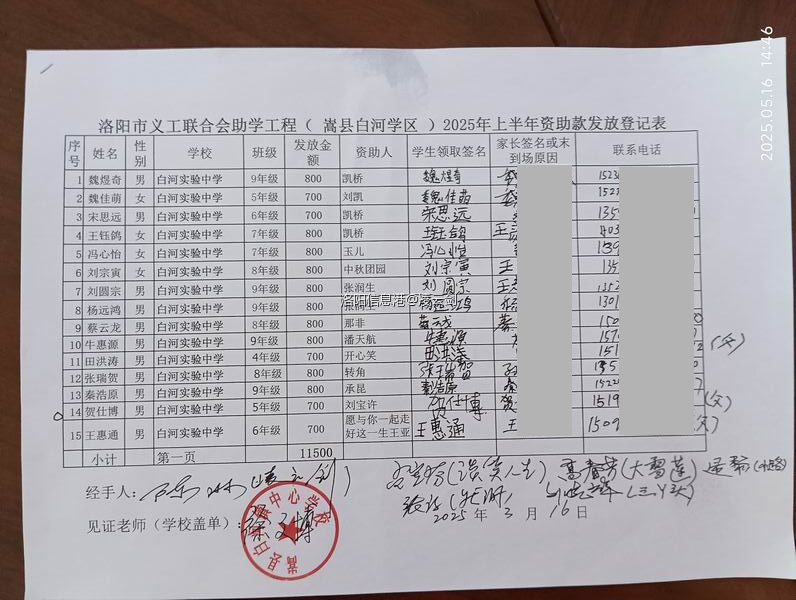 2025.05.16 14:46
洛阳市义工联合会助学工程（ 嵩县白河学区 ）2025年上半年资助款发放登记表
序号 姓名 性别 学校 班级 发放金额 资助人 学生领取签名 家长签名或未到场原因 联系电话
1 魏煜奇 男 白河实验中学 9年级 800 凯桥 魏煜奇
2 魏佳萌 女 白河实验中学 5年级 700 刘凯 魏佳萌
3 宋思远 男 白河实验中学 6年级 700 凯桥 宋思远
4 王钰鸽 女 白河实验中学 7年级 800 凯桥 王钰鸽 王
5 冯心怡 女 白河实验中学 7年级 800 玉儿 冯心怡
6 刘宗寅 女 白河实验中学 8年级 800 中秋团园 刘宗寅 王
7 刘圆宗 男 白河实验中学 9年级 800 张润生 刘圆宗 王
8 杨远鸿 男 白河实验中学 9年级 800 杨远鸿 1301
9 蔡云龙 男 白河实验中学 8年级 800 那非 蔡云龙 蔡 150
10 牛惠源 男 白河实验中学 9年级 800 潘天航 牛惠源 157
11 田洪涛 男 白河实验中学 4年级 700 开心笑 田洪涛 151
12 张瑞贺 男 白河实验中学 8年级 800 转角 张瑞贺 135
13 秦浩原 男 白河实验中学 9年级 800 承昆 秦浩原 1522
14 贺仕博 男 白河实验中学 5年级 700 刘宝许 贺仕博 贺 1519 (父)
15 王惠通 男 白河实验中学 6年级 700 愿与你一起走好这一生王亚 王惠通 王 1509 (父)
小计 第一页 11500
经手人： 高春芳(大雪莲)
2025 年 3 月 16 日
见证老师（学校盖单）： 徐文博
嵩县白河镇中心学校
洛阳信息港@